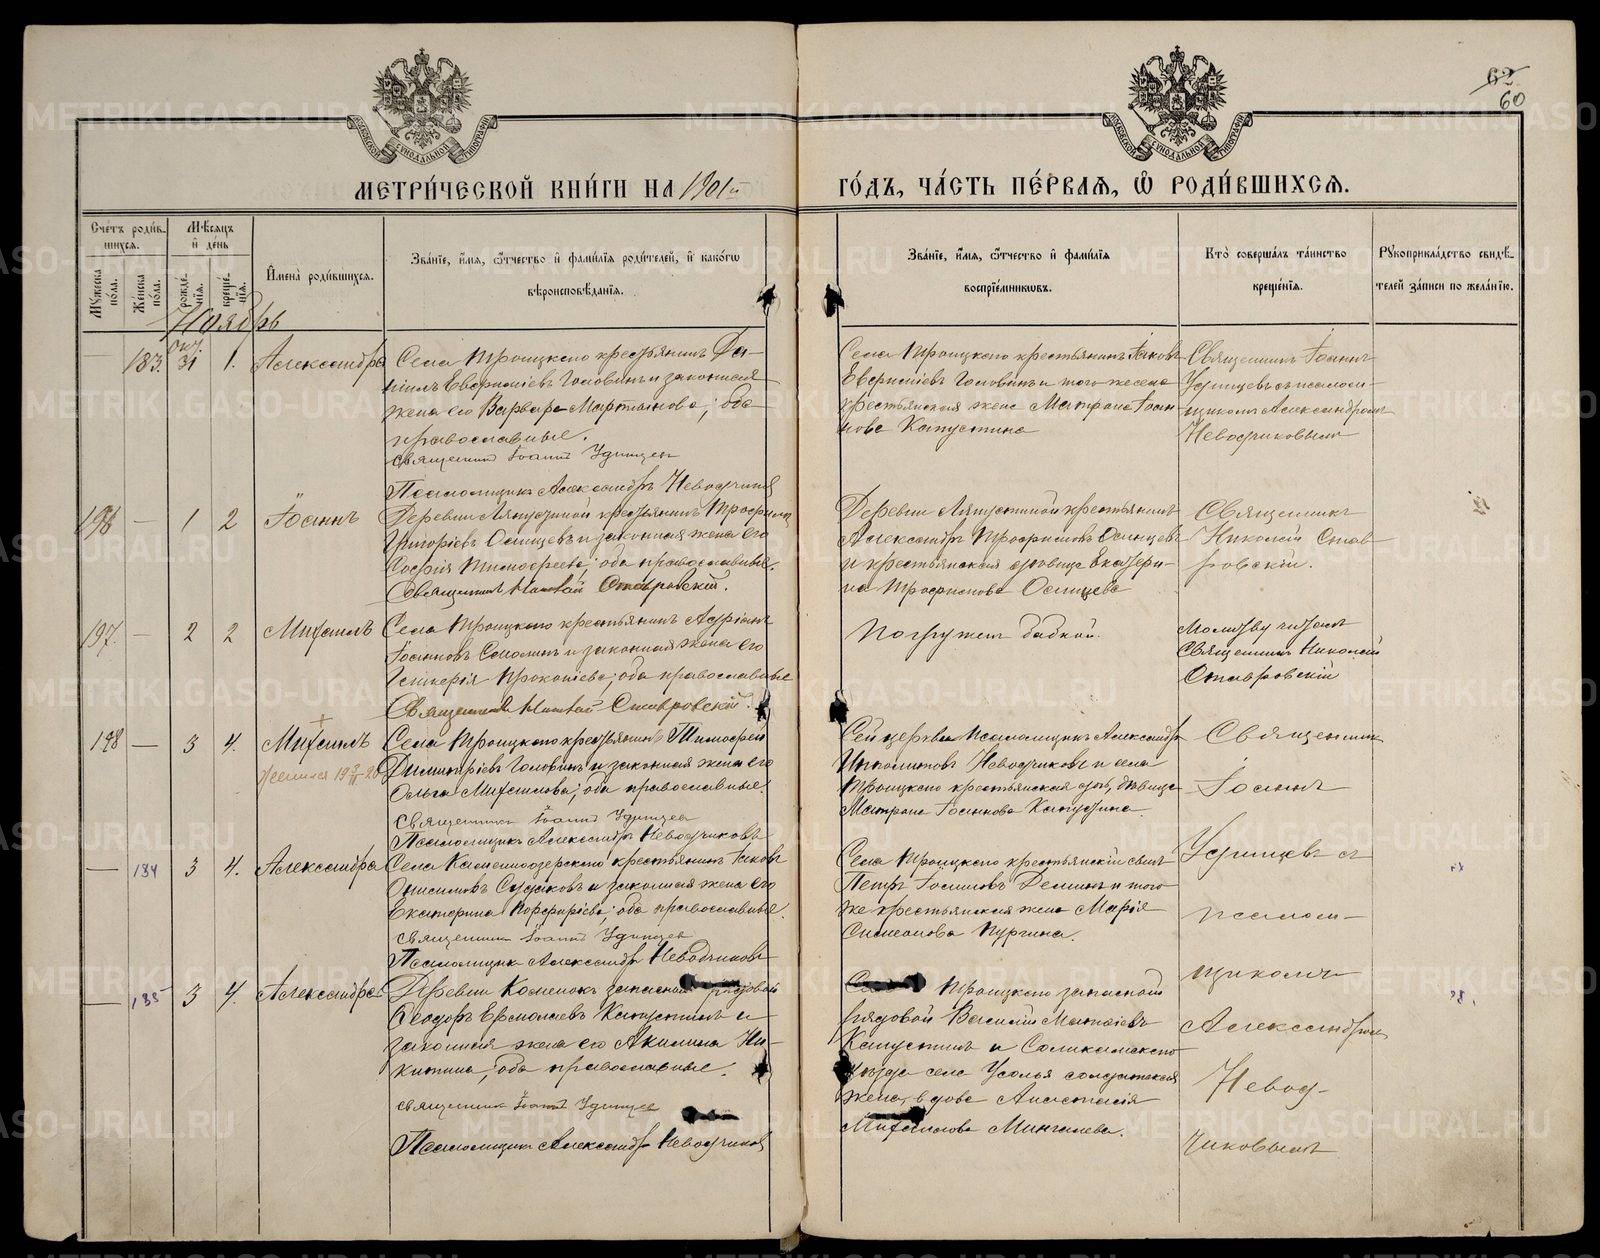 62
60
МОСКОВСКОЙ СѴНОДАЛЬНОЙ ТИПОГРАФІИ
МОСКОВСКОЙ СѴНОДАЛЬНОЙ ТИПОГРАФІИ
МЕТРИ́ЧЕСКОЙ КНИ́ГИ НА 1901й ГО́ДЪ, ЧА́СТЬ ПЕ́РВАѦ, Ѡ҆ РОДИ́ВШИХСѦ.
Сче́тъ роди́вшихсѧ.
Мꙋ́жеска по́ла.
Же́нска по́ла.
Мѣ́сѧцъ и҆ де́нь
рожде́нїѧ.
креще́нїѧ.
И҆мена̀ роди́вшихсѧ.
Зва́нїе, и҆́мѧ, ѻ҆́тчество и҆ фами́лїѧ роди́телей, и҆ како́гѡ вѣроисповѣ́данїѧ.
Зва́нїе, и҆́мѧ, ѻ҆́тчество и҆ фами́лїѧ воспрїе́мникѡвъ.
Кто̀ соверша́лъ та́инство креще́нїѧ.
Рꙋкоприкла́дство свидѣ́телей за́писи по жела́нїю.
Ноябрь
183. Окт. 31 1. Александра
Села Троицкаго крестьянинъ Да-
ніилъ Евфиміевъ Головинъ и законная
жена его Варвара Мартынова; оба
православные.
Священникъ Іоаннъ Удинцев
Псаломщикъ Александръ Неводчиков
Села Троицкаго крестьянинъ Іаковъ
Евфиміевъ Головинъ и того же села
крестьянская жена Матрона Іоан-
нова Капустина
Священникъ Іоаннъ
Удинцевъ съ псалом-
щикомъ Александромъ
Неводчиковымъ
196 — 1 2 Іоаннъ
Деревни Ляпустиной крестьянинъ Трофимъ
Григорьевъ Осинцевъ и законная жена его
православные.
Священникъ Николай Ставровскій.
Деревни Ляпустиной крестьянинъ
Александръ Трофимовъ Осинцевъ
и крестьянская дѣвица Екатери-
на Трофимова Осинцева
Священникъ
Николай Став-
ровскій.
197. — 2 2 Михаилъ
Села Троицкаго крестьянинъ Адріанъ
Іоанновъ Смолинъ и законная жена его
Гликерія Прокопіева; оба православные
Священникъ Николай Ставровскій.
Погружен бабкой.
Молитву читалъ
Священникъ Николай
Ставровскій
198 — 3 4. Михаилъ
Села Троицкаго крестьянинъ Тимофей
Димитріевъ Головинъ и законная жена его
Ольга Михаилова; оба православные.
Священникъ Іоаннъ Удинцев
Псаломщикъ Александръ Неводчиковъ
Сей церкви псаломщикъ Александръ
Неводчиковъ и села
Троицкаго крестьянская дочь, дѣвица
Матрона Іоаннова Капустина
Священник
Іоаннъ
— 184 3 4. Александра
Села Каменноозерскаго крестьянинъ Іаковъ
Онисимовъ Судаковъ и законная жена его
Екатерина Порфиріева; оба православные.
Священникъ Іоаннъ Удинцев
Псаломщикъ Александръ Неводчиковъ
Села Троицкаго крестьянскій сынъ
Петръ Деминъ и того
же крестьянская жена Марія
Симеонова Пургина.
Удинцевъ съ
псалом-
щикомъ
— 185 3 4. Александра
Деревни запасной рядовой
Ѳеодоръ Ермолаевъ Капустинъ и
законная жена его Акилина Ни-
китина; оба православные.
Священникъ Іоаннъ Удинцев
Псаломщикъ Александръ Неводчиков
Села Троицкаго запасной
рядовой Василій Матвіевъ
Капустинъ и Соликамскаго
уѣзда села Усолья солдатская
жена, вдова Анастасія
Михаилова Мингалева.
Александромъ
Невод-
чиковымъ
METRIKI.GASO-URAL.RU